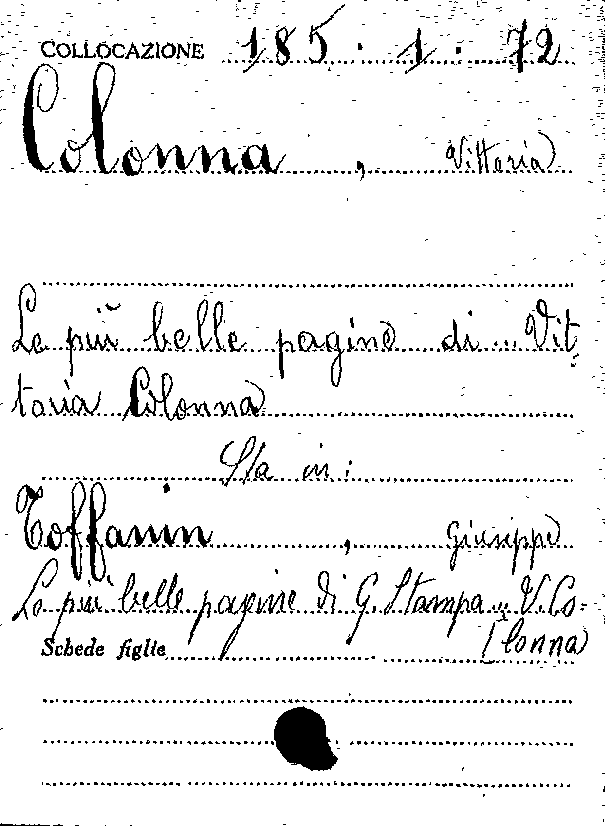 COLLOCAZIONE 185 . 1 . 72
Colonna , Vittoria
Le più belle pagine di ... Vit
toria Colonna
Sta in :
Toffanin , Giuseppe
Le più belle pagine di G. Stampa ... V. Co-
[lonna
Schede figlie